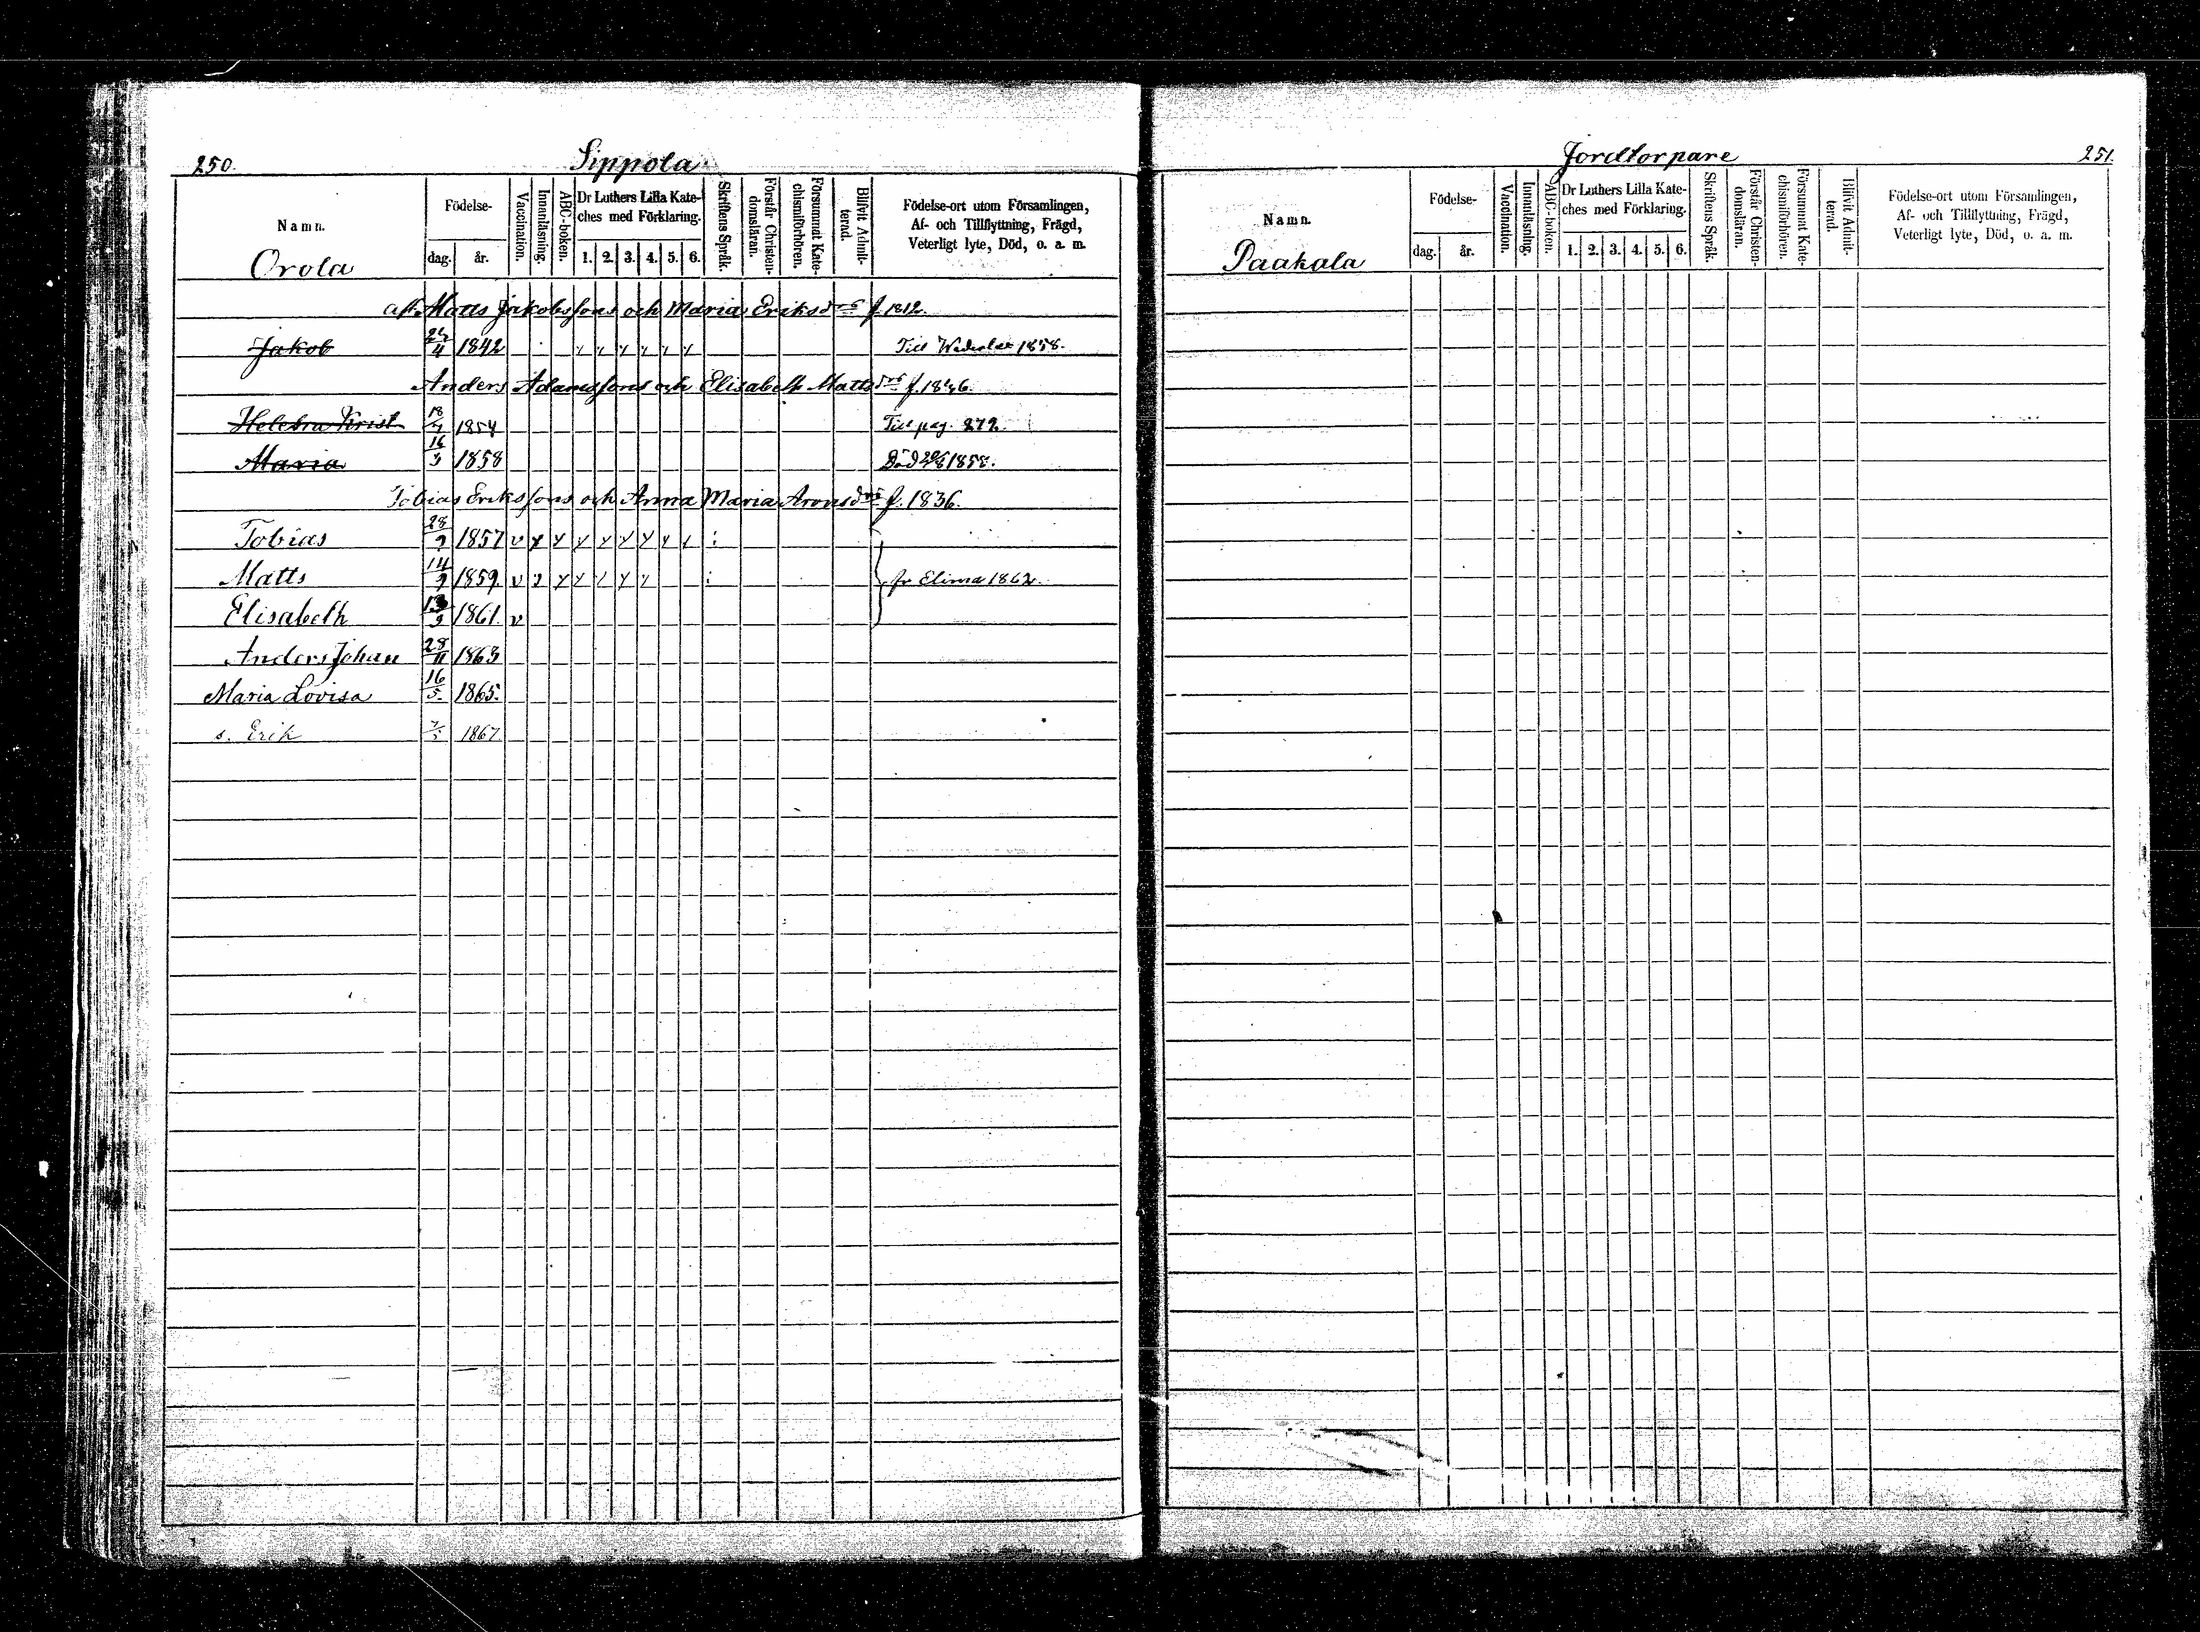 250.
Sippola
Namn.
Födelse-
dag.
år.
Vaccination.
Innanläsning.
ABC-boken.
Dr Luthers Lilla Kate-
ches med Förklaring.
1. 2. 3. 4. 5. 6.
Skriftens Språk.
Förstår Christen-
domsläran.
Försummat Kate-
chismiförhören.
Blifvit Admit-
terad.
Födelse-ort utom Församlingen,
Af- och Tillflyttning, Frägd,
Veterligt lyte, Död, o. a. m.
Orola
af Matts Jakobssons och Maria Eriksdrs f. 1812.
Jakob 4 1842 Till 1858.
Anders Adamssons och Elisabeth Mattsdrs f. 1846.
Helena Krist 18 1854 Till pag. 272.
Maria 16/3 1858 Död 1858.
Tobias Erikssons och Anna Maria Aronsdrs f. 1836.
Tobias 28 1857 v
Matts 14 1859 v fr Elima 1862.
Elisabeth 1861. v
Anders Johan 28/11 1863
Maria Lovisa 16/5. 1865.
s. Erik 1867
Jordtorpare
251.
Namn.
Födelse-
dag.
år.
Vaccination.
Innanläsning.
ABC-boken.
Dr Luthers Lilla Kate-
ches med Förklaring.
1. 2. 3. 4. 5. 6.
Skriftens Språk.
Förstår Christen-
domsläran.
Försummat Kate-
chismiförhören.
Blifvit Admit-
terad.
Födelse-ort utom Församlingen,
Af- och Tillflyttning, Frägd,
Veterligt lyte, Död, o. a. m.
Paakala